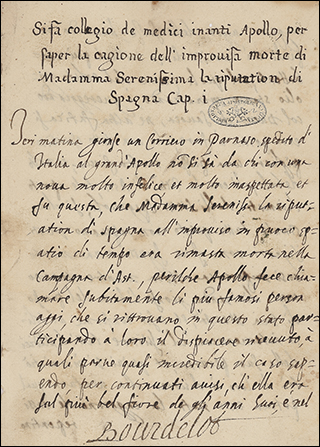 Si fa collegio de medici inanti Apollo, per
saper la cagione dell' improvisa morte di
Madamma Serenissima la riputation di
Spagna Cap. i
Ieri matina gionse un Corriero in Parnaso spedito d'
Italia al grand' Apollo nō si sa da chi con una
nova molto infelice et molto inaspettata et
fu questa, che Madamma Serenisṣ. la riput-
ation di spagna all' improviso in puoco sp-
atio di tempo era rimasta morta nella
Campagna d'Ast., perilche Apollo fece chia-
mare subitamente li più famosi person-
aggi, che si rittrovano in questo stato par-
ticipando à loro il dispiacere ricevuto, à
quali parve quasi incredibile il caso sap-
endo per continuati avisi, ch' ella era
sul più bel fiore de gli anni suoi, e nel
Bourdelot